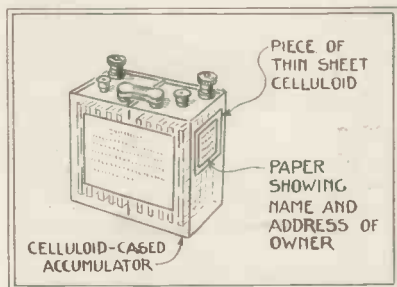 PIECE OF
THIN SHEET
CELLULOID
PAPER
SHOWING
NAME AND
ADDRESS OF
OWNER
CELLULOID-CASED
ACCUMULATOR